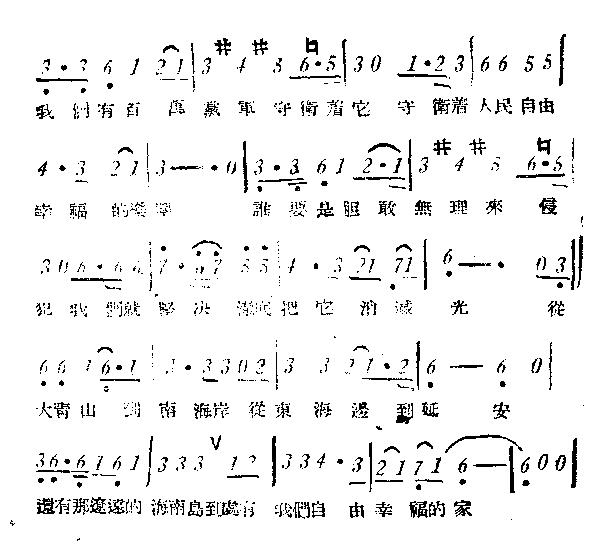 3·3 6 1 21|3 #4 #5 ♮6·5|3 0 1·2 3|6 6 5 5|
我們有百萬黨軍守衛着它守衛着人民自由
4·3 21|3—·0|3·3 6 1 2·1|3 #4 #5 ♮6·5
幸福的 誰要是胆敢無理來侵
3 0 6·6 6|7·67 5 5|4·3 21 71|6—·03‖
犯我們就 决 底把它消滅光從
6 6 1 6·1|3·3 3 0 2|3 3 21·2|6—6 0|
大青山到南海岸從東海邊到延安
36·6 1 6 1|3 3 3 V 1 2|3 3 4·3|21 71 6—|6 0 0|
還有那遼遠的海南島到處有我們自由幸福的家